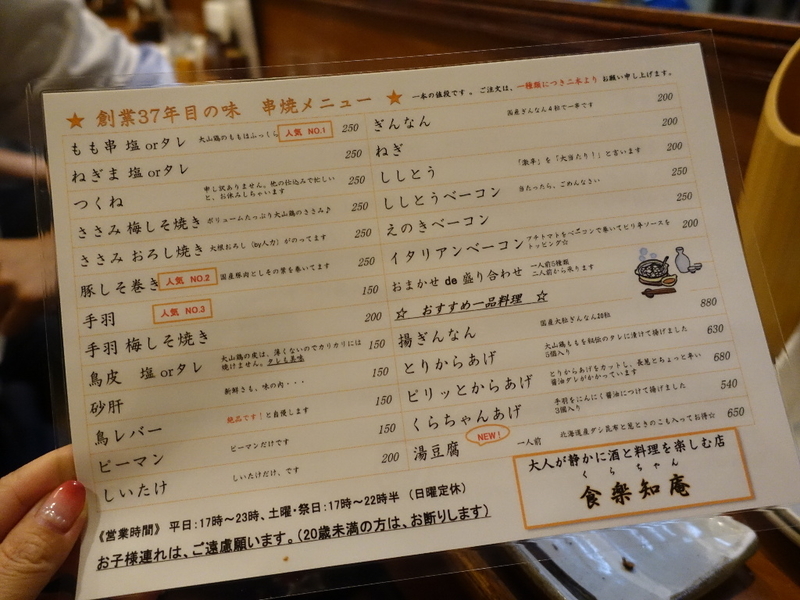 ★ 創業37年目の味 串焼メニュー ★ 一本の値段です。ご注文は、一種類につき二本より お願い申し上げます。
もも串 塩 orタレ 大山鶏のももはふっくら 人気 NO.1 250
ねぎま 塩 orタレ 250
つくね 申し訳ありません。他の仕込みで忙しいと、お休みしちゃいます 250
ささみ 梅しそ焼き ボリュームたっぷり大山鶏のささみ♪ 250
ささみ おろし焼き 大根おろし(by人力)がのってます 250
豚しそ巻き 人気 NO.2 国産豚肉としその葉を巻いてます 250
手羽 人気 NO.3 150
手羽 梅しそ焼き 200
鳥皮 塩 orタレ 大山鶏の皮は、薄くないのでカリカリには焼けません。タレも美味 150
砂肝 新鮮さも、味の内・・・ 150
鳥レバー 絶品です!と自慢します 150
ピーマン ピーマンだけです 150
しいたけ しいたけだけ、です 200
ぎんなん 国産ぎんなん4粒で一串です 200
ねぎ 200
ししとう 「激辛」を「大当たり!」と言います 200
ししとうベーコン 当たったら、ごめんなさい 250
えのきベーコン 250
イタリアンベーコン プチトマトをベーコンで巻いてピリ辛ソースをトッピング☆ 200
おまかせ de 盛り合わせ 一人前5種類 二人前から承ります
☆ おすすめ一品料理 ☆
揚ぎんなん 国産大粒ぎんなん20粒 880
とりからあげ 大山鶏ももを秘伝のタレに漬けて揚げました 5個入り 630
ピリッとからあげ とりからあげをカットし、長葱とちょっと辛い醤油ダレがかかっています 680
くらちゃんあげ 手羽をにんにく醤油につけて揚げました 3個入り 540
湯豆腐 NEW! 一人前 北海道産ダシ昆布と葱ときのこも入ってお得☆ 650
大人が静かに酒と料理を楽しむ店
くらちゃん
食楽知庵
《営業時間》 平日:17時～23時、土曜・祭日:17時～22時半 (日曜定休)
お子様連れは、ご遠慮願います。(20歳未満の方は、お断りします)